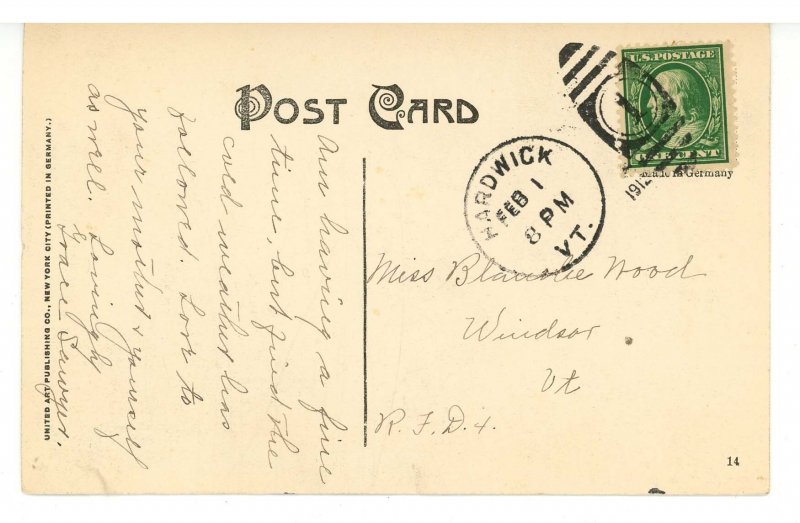 POST CARD
U.S. POSTAGE
ONE CENT
Made in Germany
1912
HARDWICK
FEB 1
8 PM
VT.
Am having a fine
time, but find the
cold weather has
followed. Love to
your mother & yourself
as well. Lovingly
Grace Sawyer.
Miss Blanche Wood
Windsor
Vt
R.F.D. 4.
UNITED ART PUBLISHING CO., NEW YORK CITY (PRINTED IN GERMANY.)
14